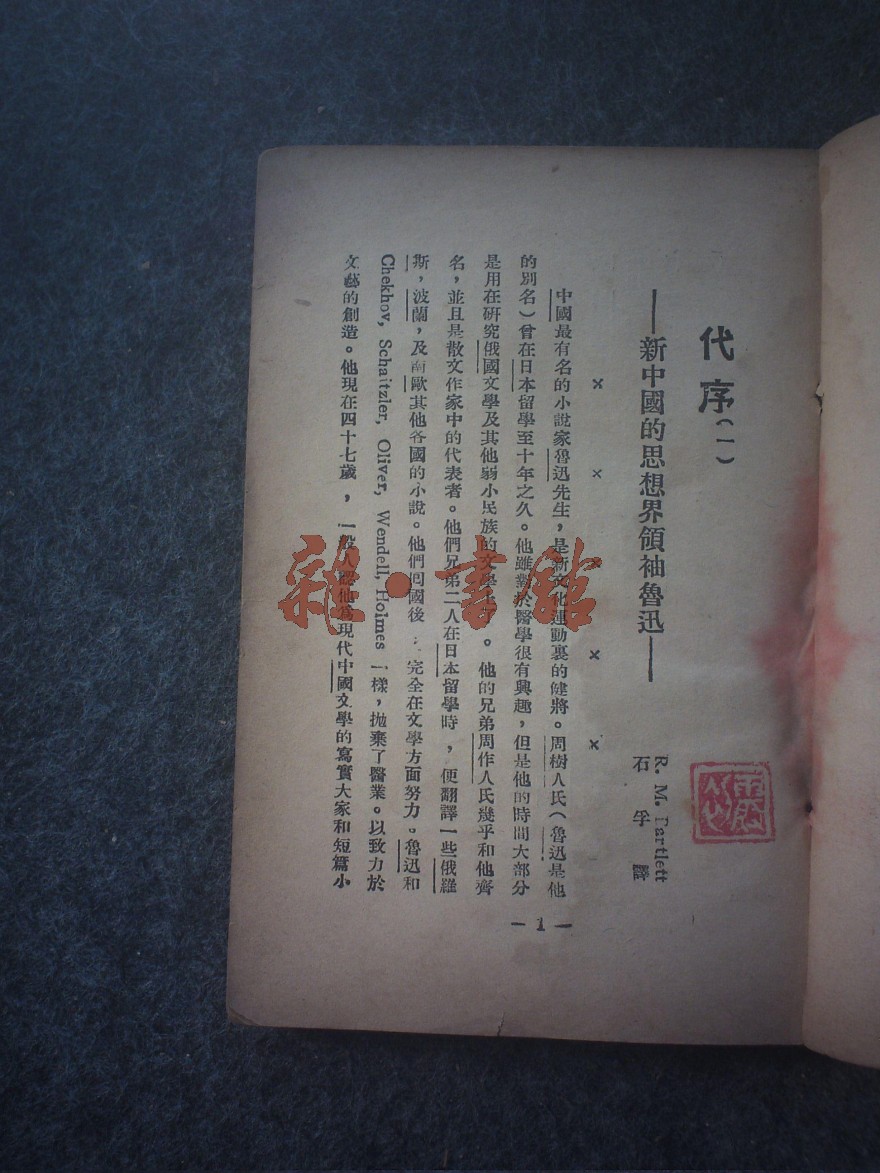 代序(一)
——新中國的思想界領袖魯迅——
R. M. Bartlett
石孚譯
× × × × ×
中國最有名的小說家魯迅先生，是新文化運動裏的健將。周樹人氏（魯迅是他
的別名）曾在日本留學至十年之久。他雖對於醫學很有興趣，但是他的時間大部分
是用在研究俄國文學及其他弱小民族的文學。他的兄弟周作人氏幾乎和他齊
名，並且是散文作家中的代表者。他們兄弟二人在日本留學時，便翻譯一些俄羅
斯，波蘭，及南歐其他各國的小說。他們囘國後完全在文學方面努力。魯迅和
Chekhov, Schaitzler, Oliver, Wendell, Holmes 一樣，抛棄了醫業。以致力於
文藝的創造。他現在四十七歲，一般人認他為現代中國文學的寫實大家和短篇小
— 1 —
雜·書館